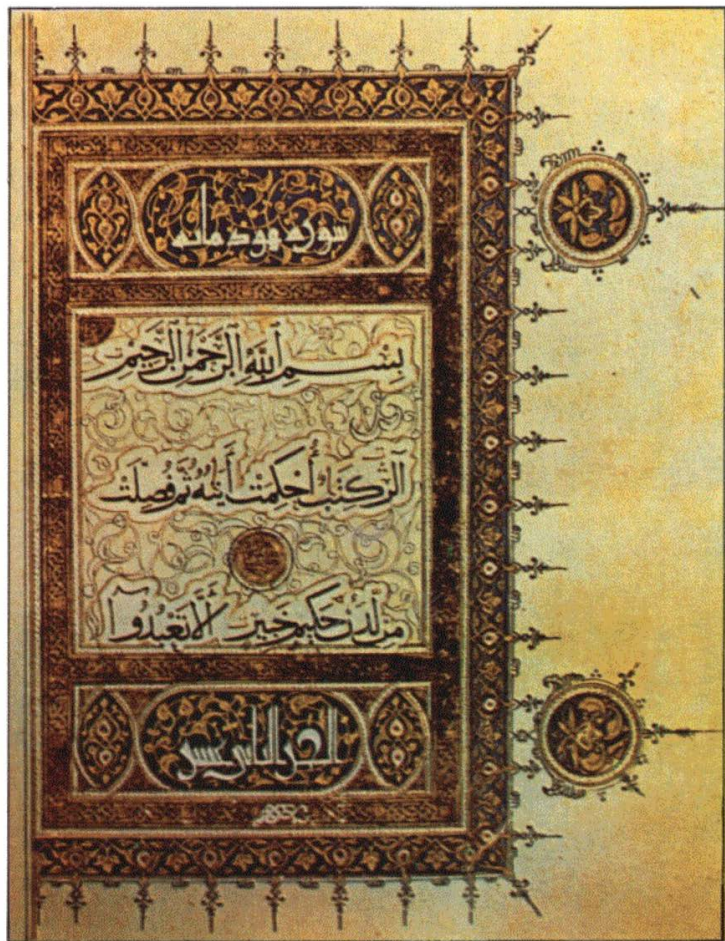 سورة هود مائة
بِسْمِ ٱللَّهِ ٱلرَّحْمَٰنِ ٱلرَّحِيمِ
الٓر كِتَٰبٌ أُحْكِمَتْ ءَايَٰتُهُۥ ثُمَّ فُصِّلَتْ
مِن لَّدُنْ حَكِيمٍ خَبِيرٍ أَلَّا تَعْبُدُوٓا۟
الجزء الثاني عشر